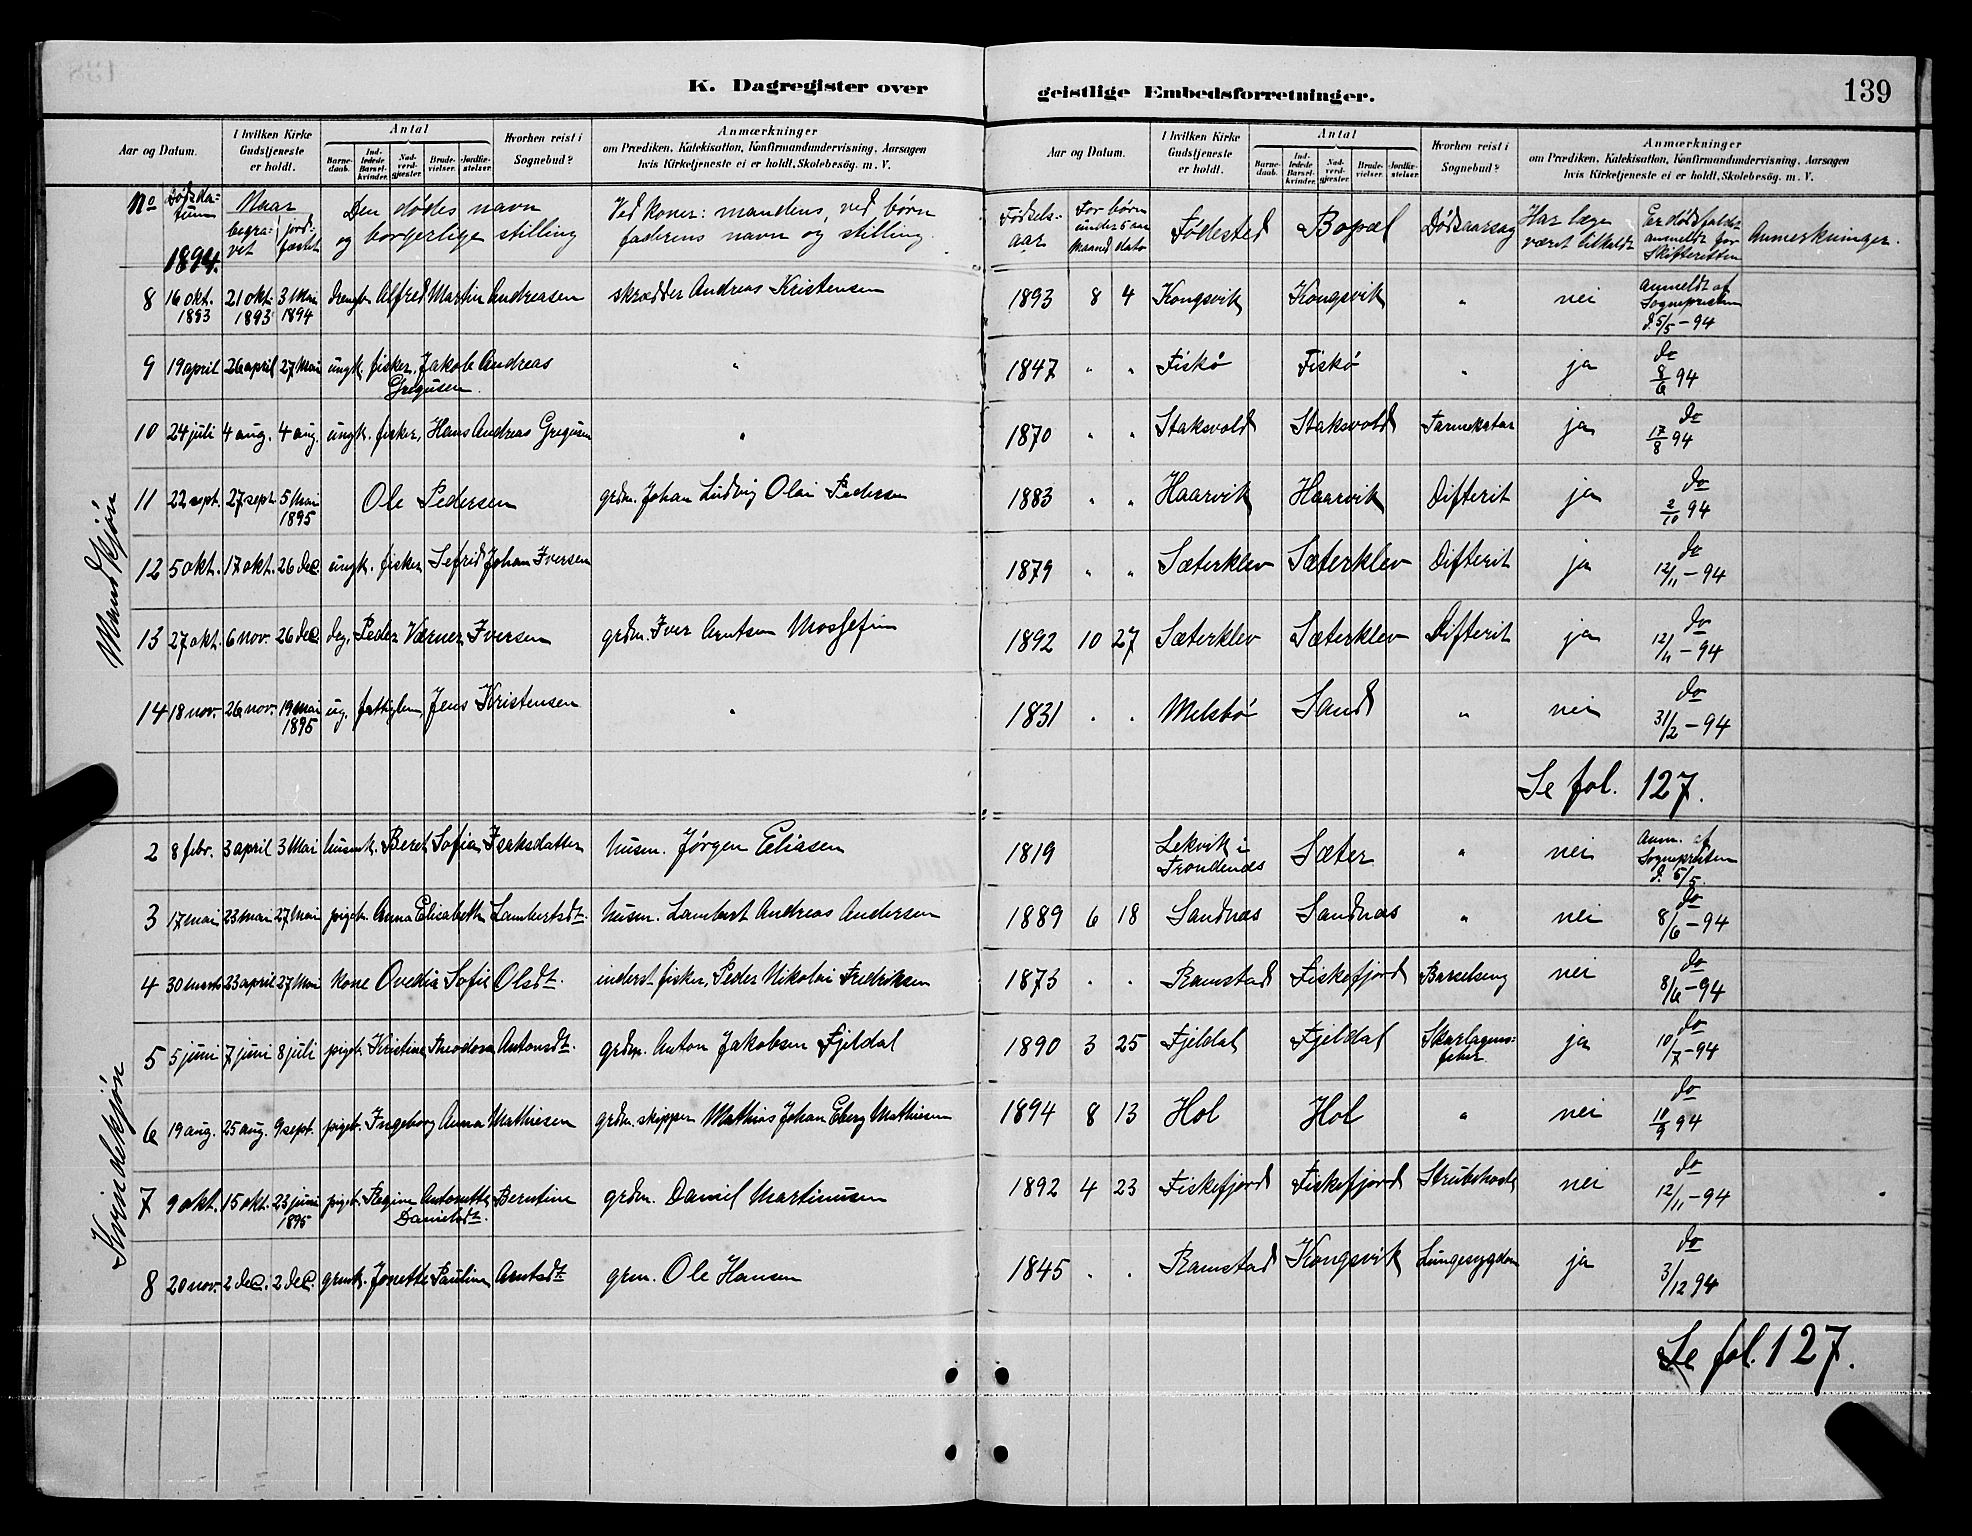 K. Dagregister over geistlige Embedsforretninger. 139
Aar og Datum. I hvilken Kirke Gudstjeneste er holdt. Antal Barnedaab. Indledede Barselkvinder. Nadverdgjester. Brudevielser. Jordfæstelser. Hvorhen reist i Sognebud? Anmærkninger om Prædiken, Katekisation, Konfirmandundervisning, Aarsagen hvis Kirketjeneste ei er holdt, Skolebesög. m. V.
Aar og Datum. I hvilken Kirke Gudstjeneste er holdt. Antal Barnedaab. Indledede Barselkvinder. Nadverdgjester. Brudevielser. Jordfæstelser. Hvorhen reist i Sognebud? Anmærkninger om Prædiken, Katekisation, Konfirmandundervisning, Aarsagen hvis Kirketjeneste ei er holdt, Skolebesög. m. V.
No Dødsdatum 1894. Naar begravet jordfæstet Den dødes navn og borgerlige stilling Ved koner: mandens, ved børn faderens navn og stilling. Fødselsaar For børn under 5 aar Maaned dato Fødested Bopæl Dødsaarsag Har læge været tilkaldt Er dødsfaldet anmeldt for Skifteretten Anmerkninger.
Mandkjøn
8 16 okt. 1893 21 okt. 1893 3 Mai 1894 dreng Alfred Martin Andreasen skrædder Andreas Kristensen 1893 8 4 Kongsvik Kongsvik " nei anmeldt af Sognepresten d. 5/5 - 94
9 19 april 26 april 27 Mai ungk. fisker, Jakob Andreas Gregusen. " 1847 " " Fiskø Fiskø " ja do 8/6 94
10 24 juli 4 aug. 4 aug. ungk. fisker, Hans Andreas Gregusen " 1870 " " Staksvold Staksvold Tarmekatar ja do 17/8 94
11 22 sept. 27 sept. 5 Mai 1895 Ole Pedersen grdm. Johan Ludvig Olai Pedersen 1883 " " Haarvik Haarvik Difterit ja do 2/10 94
12 5 okt. 17 okt. 26 dec. ungk. fisker Sefrid Johan Iversen 1879 " " Sæterklev Sæterklev Difterit ja do 12/11 - 94
13 27 okt. 6 nov. 26 dec. Peder Værner Iversen grdm. Iver Arntsen 1892 10 27 Sæterklev Sæterklev Difterit ja do 12/11 - 94
14 18 nov. 26 nov. 19 Mai 1895 ug. fattiglem Jens Kristensen " 1831 " " Melsbø Sand " nei do 31/2 - 94
Se fol. 127.
Kvindekjøn
2 8 febr. 3 april 3 Mai husmk. Beret Sofia Isaksdatter husm. Jørgen Eliasen 1819 Lekvik i Trondenæs Sæter " nei Anm. af Sognepresten d. 5/5.
3 17 mai 23 mai 27 Mai pigeb. Anna Elisabeth Lambertsdt. husm. Lambert Andreas Andersen 1889 6 18 Sandnæs Sandnæs " nei do 8/6 - 94
4 30 marts 23 april 27 Mai Kone Ovedia Sofie Olsdt. inderst fisker, Peder Nikolai Fredriksen 1873 " " Ramstad Fiskefjord Barselseng nei do 8/6 - 94
5 5 juni 7 juni 8 juli pigeb. Kristine Theodora Antonsdt. grdm. Anton Jakobsen Fjeldal 1890 3 25 Fjeldal Fjeldal Skarlagensfeber ja do 10/7 - 94
6 19 aug. 25 aug. 9 sept. pigeb. Ingeborg Anna Mathiesen grdm. skipper Mathias Johan Eberg Mathiesen 1894 8 13 Hol Hol " nei do 10/9 94
7 9 okt. 15 okt. 23 juni 1895 pigeb. Regine Antonette Berntine Danielsdt. grdm. Daniel Martinusen 1892 4 23 Fiskefjord Fiskefjord Strubehoste nei do 12/11 - 94
8 20 nov. 2 dec. 2 dec. grmk. Jonette Pauline Arntsdt grm. Ole Hansen 1845 " " Ramstad Kongsvik Lungesygdom ja do 3/12 94
Se fol. 127.